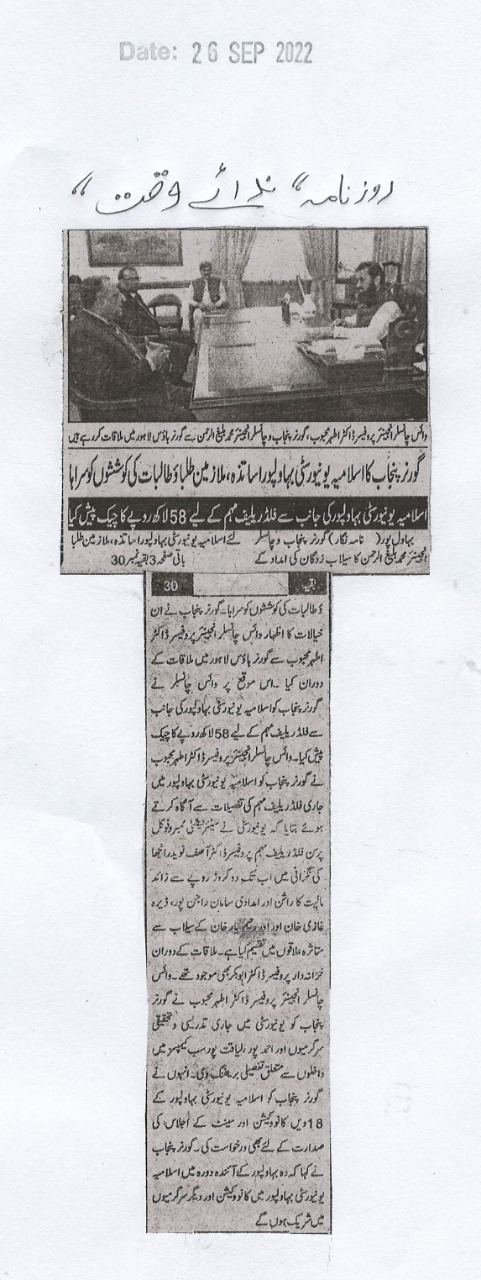 Date: 26 SEP 2022
روزنامہ "نوائے وقت"
وائس چانسلر انجینئر پروفیسر ڈاکٹر اطہر محبوب، گورنر پنجاب و چانسلر انجینئر محمد بلیغ الرحمن سے گورنر ہاؤس لاہور میں ملاقات کر رہے ہیں
گورنر پنجاب کا اسلامیہ یونیورسٹی بہاولپور اساتذہ، ملازمین طلباؤ طالبات کی کوششوں کو سراہا
اسلامیہ یونیورسٹی بہاولپور کی جانب سے فلڈ ریلیف مہم کے لیے 58 لاکھ روپے کا چیک پیش کیا
بہاول پور( نامہ نگار) گورنر پنجاب و چانسلر
انجینئر محمد بلیغ الرحمن کا سیلاب زدگان کی امداد کے
لئے اسلامیہ یونیورسٹی بہاولپور اساتذہ، ملازمین طلبا
باقی صفحہ 3 بقیہ نمبر 30
بقیہ 30
ؤ طالبات کی کوششوں کو سراہا۔ گورنر پنجاب نے ان
خیالات کا اظہار وائس چانسلر انجینئر پروفیسر ڈاکٹر
اطہر محبوب سے گورنر ہاؤس لاہور میں ملاقات کے
دوران کیا ۔ اس موقع پر وائس چانسلر نے
گورنر پنجاب کو اسلامیہ یونیورسٹی بہاولپور کی جانب
سے فلڈ ریلیف مہم کے لیے 58 لاکھ روپے کا چیک
پیش کیا۔ وائس چانسلر انجینئر پروفیسر ڈاکٹر اطہر محبوب
نے گورنر پنجاب کو اسلامیہ یونیورسٹی بہاولپور میں
جاری فلڈ ریلیف مہم کی تفصیلات سے آگاہ کرتے
ہوئے بتایا کہ یونیورسٹی نے سینئر فیکلٹی ممبر و فوکل
پرسن فلڈ ریلیف مہم پروفیسر ڈاکٹر آصف نوید رانجھا
کی نگرانی میں اب تک دو کروڑ روپے سے زائد
مالیت کا راشن اور امدادی سامان راجن پور، ڈیرہ
غازی خان اور رحیم یار خان کے سیلاب سے
متاثرہ علاقوں میں تقسیم کیا ہے۔ ملاقات کے دوران
خزانہ دار پروفیسر ڈاکٹر ابوبکر بھی موجود تھے۔ وائس
چانسلر انجینئر پروفیسر ڈاکٹر اطہر محبوب نے گورنر
پنجاب کو یونیورسٹی میں جاری تدریسی و تحقیقی
سرگرمیوں اور احمد پور، لیاقت پور سب کیمپسز میں
داخلوں سے متعلق تفصیلی بریفنگ دی۔ انہوں نے
گورنر پنجاب کو اسلامیہ یونیورسٹی بہاولپور کے
18 ویں کانووکیشن اور سینٹ کے اجلاس کی
صدارت کے لئے بھی درخواست کی۔ گورنر پنجاب
نے کہا کہ وہ بہاولپور کے آئندہ دورہ میں اسلامیہ
یونیورسٹی بہاولپور میں کانووکیشن اور دیگر سرگرمیوں
میں شریک ہوں گے